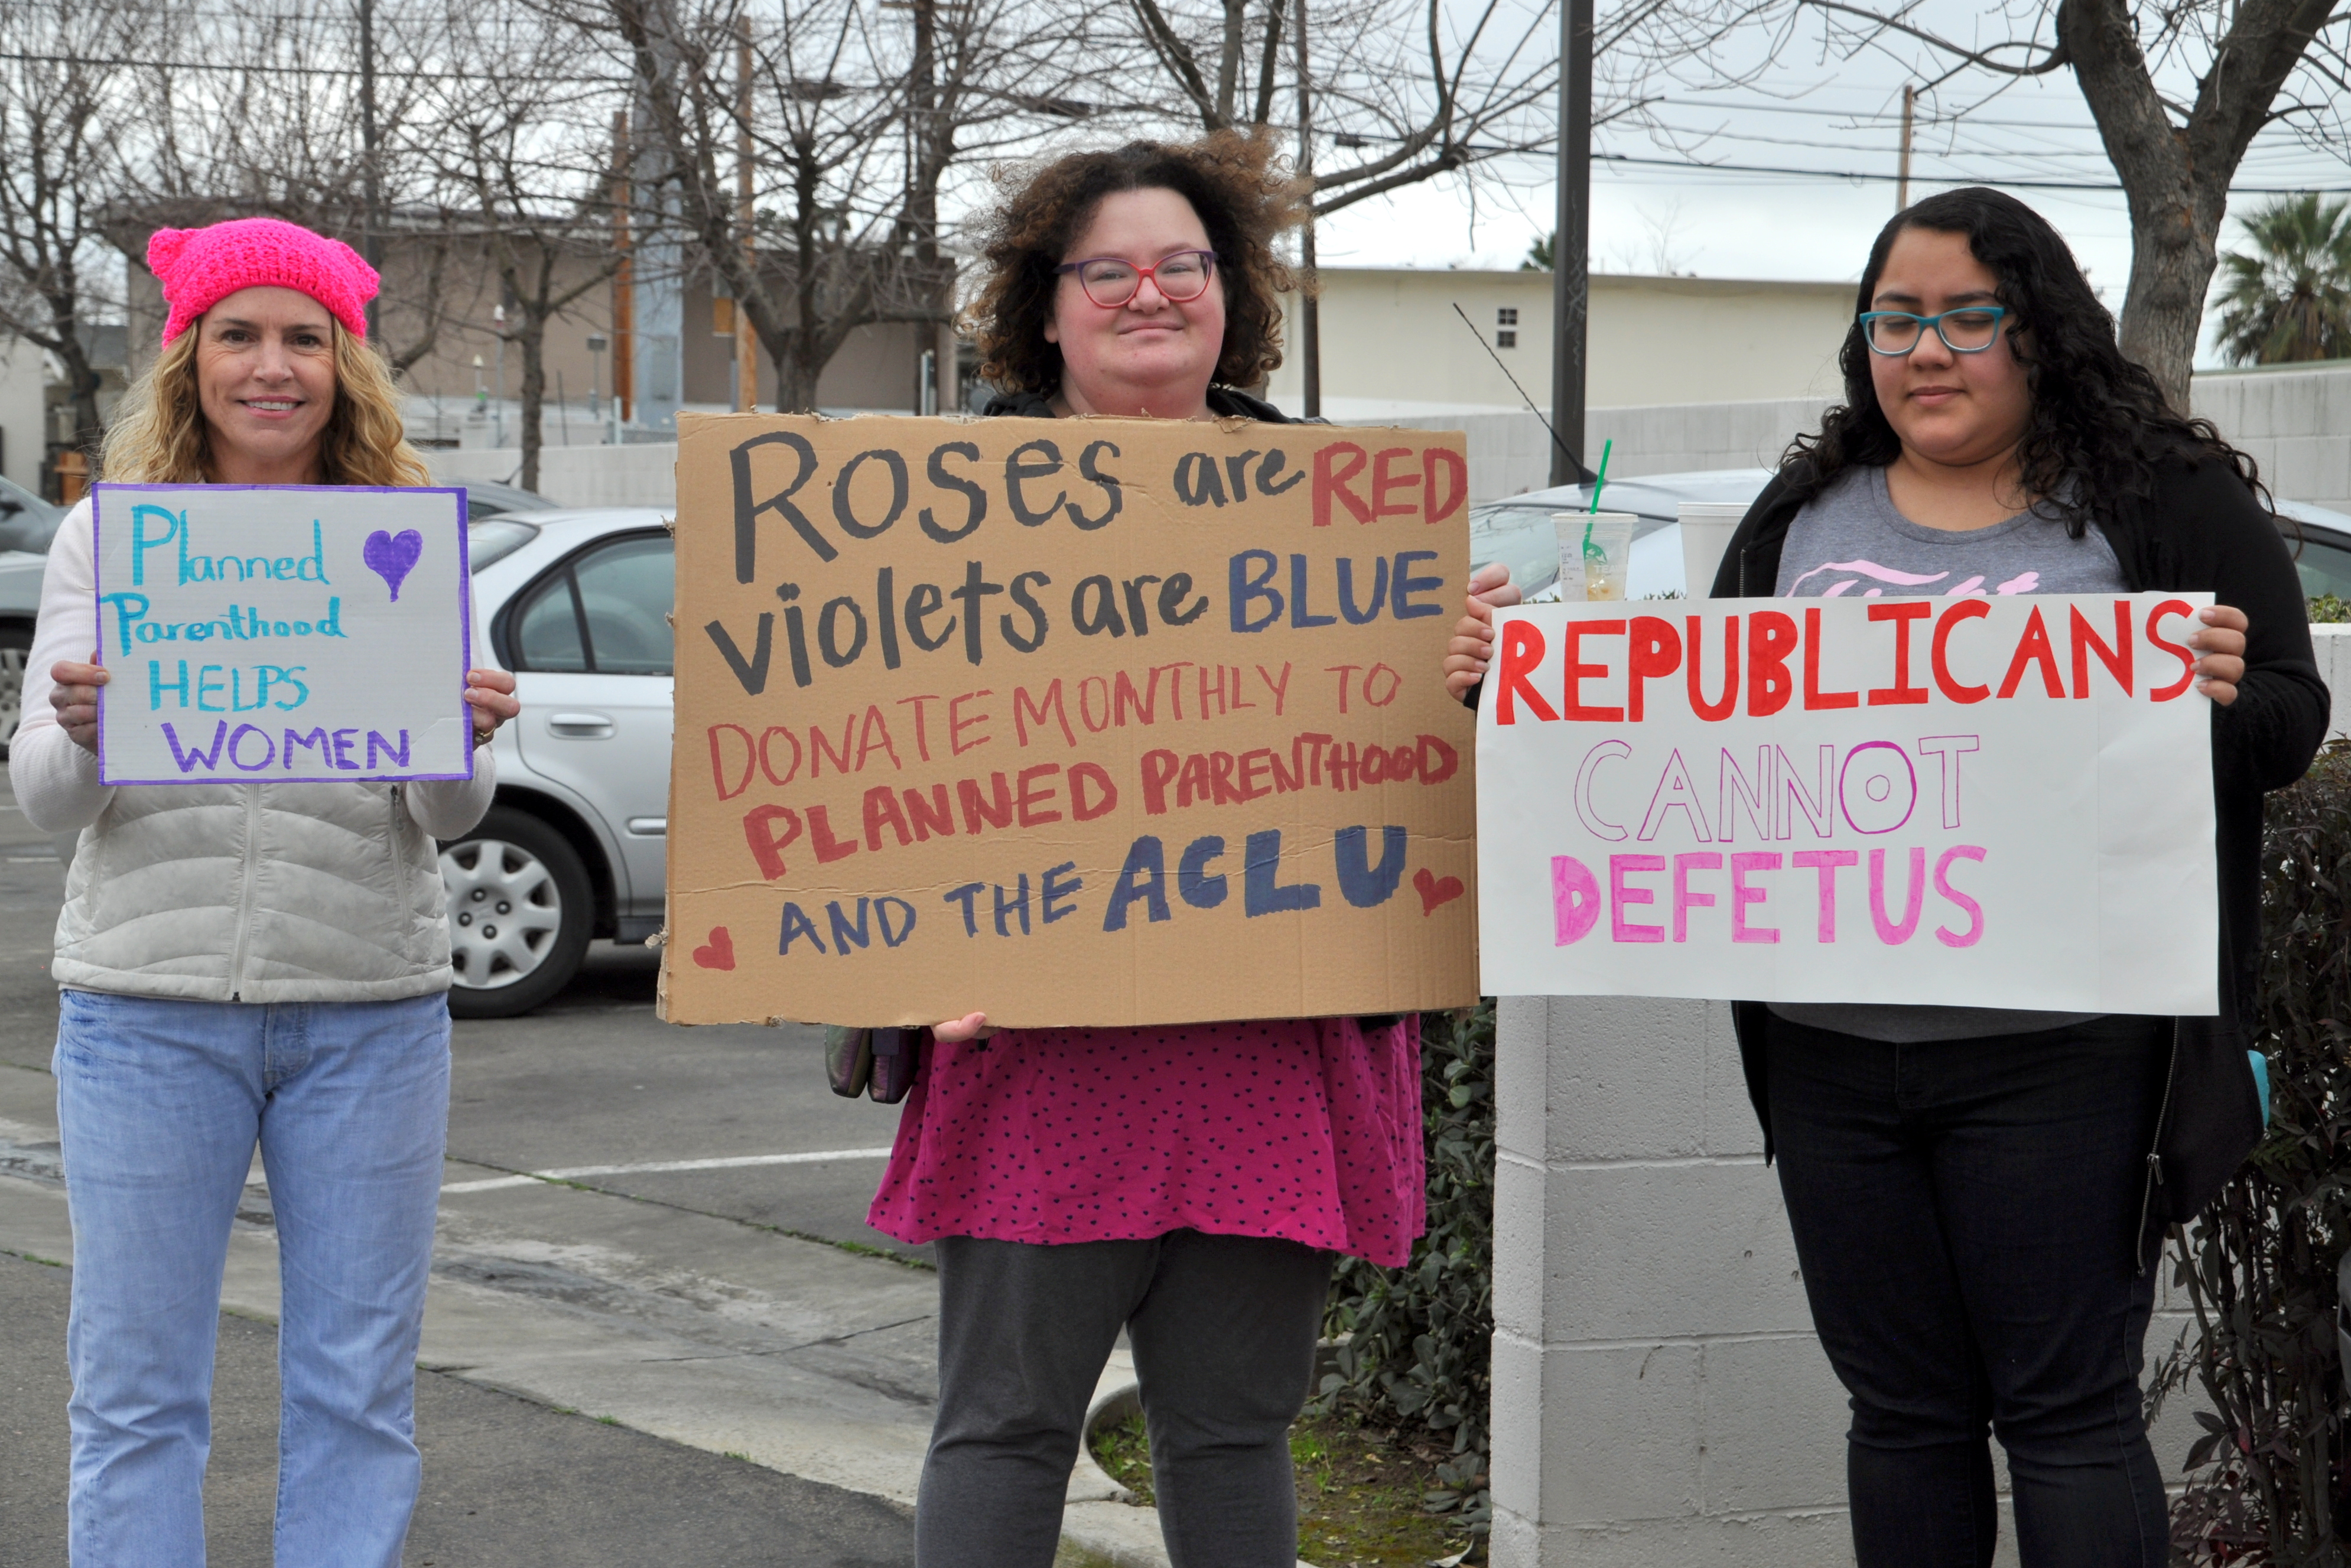 Planned
Parenthood
HELPS
WOMEN
Roses are RED
violets are BLUE
DONATE MONTHLY TO
PLANNED PARENTHOOD
AND THE ACLU
REPUBLICANS
CANNOT
DEFETUS